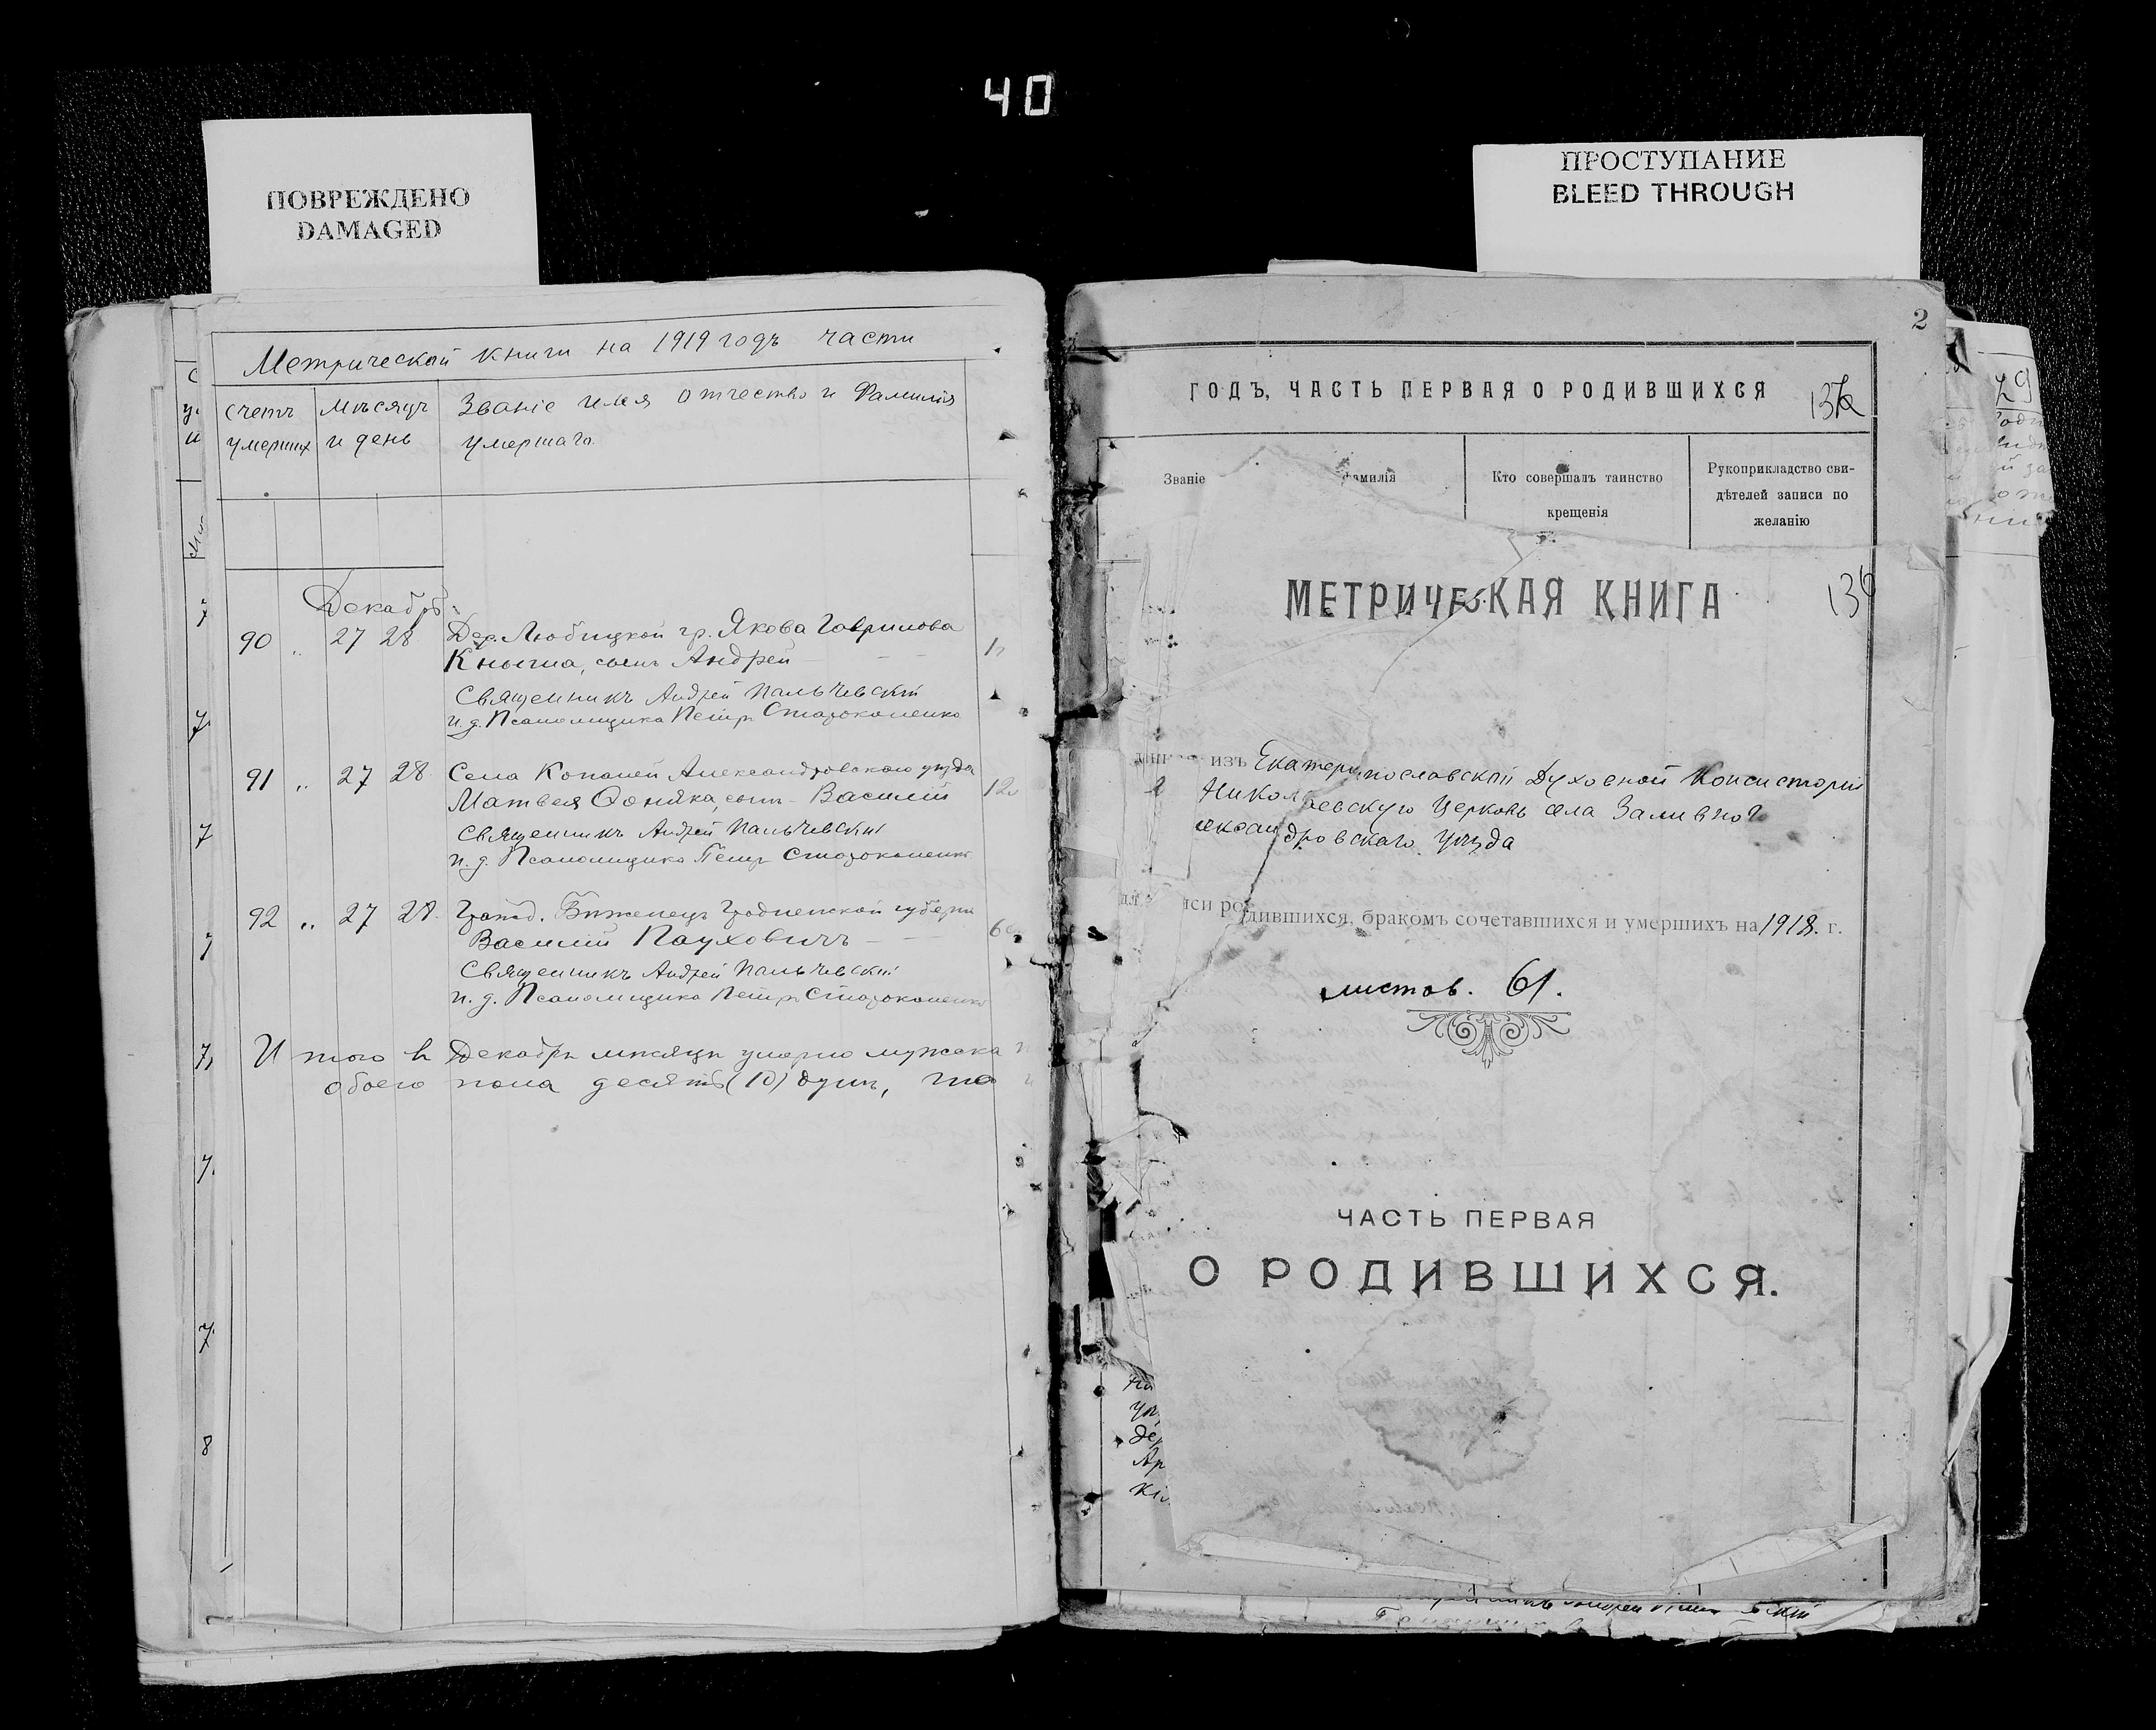 40
ПОВРЕЖДЕНО
DAMAGED
ПРОСТУПАНИЕ
BLEED THROUGH
Метрической книги на 1919 годъ части
счетъ умерших
Мѣсяцъ и день
Званіе имя отчество и Фамилія
умершаго.
Декабрь
90 " 27 28 Дер. Любицкой гр. Якова Гаврилова
сынъ Андрей
Священникъ Андрей Пальчевскій
и. д. Псаломщика Петръ Староконенко
91 " 27 28 Села Копаней Александровскаго уѣзда
Матвея сынъ Василій
Священникъ Андрей Пальчевскій
и. д. Псаломщика Петръ Староконенко
92 " 27 28. Гражд. Бѣженецъ Гродненской губерн
Василій Пауховичъ
Священникъ Андрей Пальчевскій
и. д. Псаломщика Петръ Староконенко
Итого въ Декабрѣ мѣсяцѣ умерло мужска
обоего пола десять (10) душъ, что
2
ГОДЪ, ЧАСТЬ ПЕРВАЯ О РОДИВШИХСЯ
Званіе
Фамилія
Кто совершалъ таинство
крещенія
Рукоприкладство сви-
дѣтелей записи по
желанію
МЕТРИЧЕСКАЯ КНИГА
136
изъ Екатеринославской Духовной Консисторіи
Николаевскую Церковь села Заливного
ександровскаго уѣзда
иси родившихся, бракомъ сочетавшихся и умершихъ на 1918. г.
листов. 61.
ЧАСТЬ ПЕРВАЯ
О РОДИВШИХСЯ.